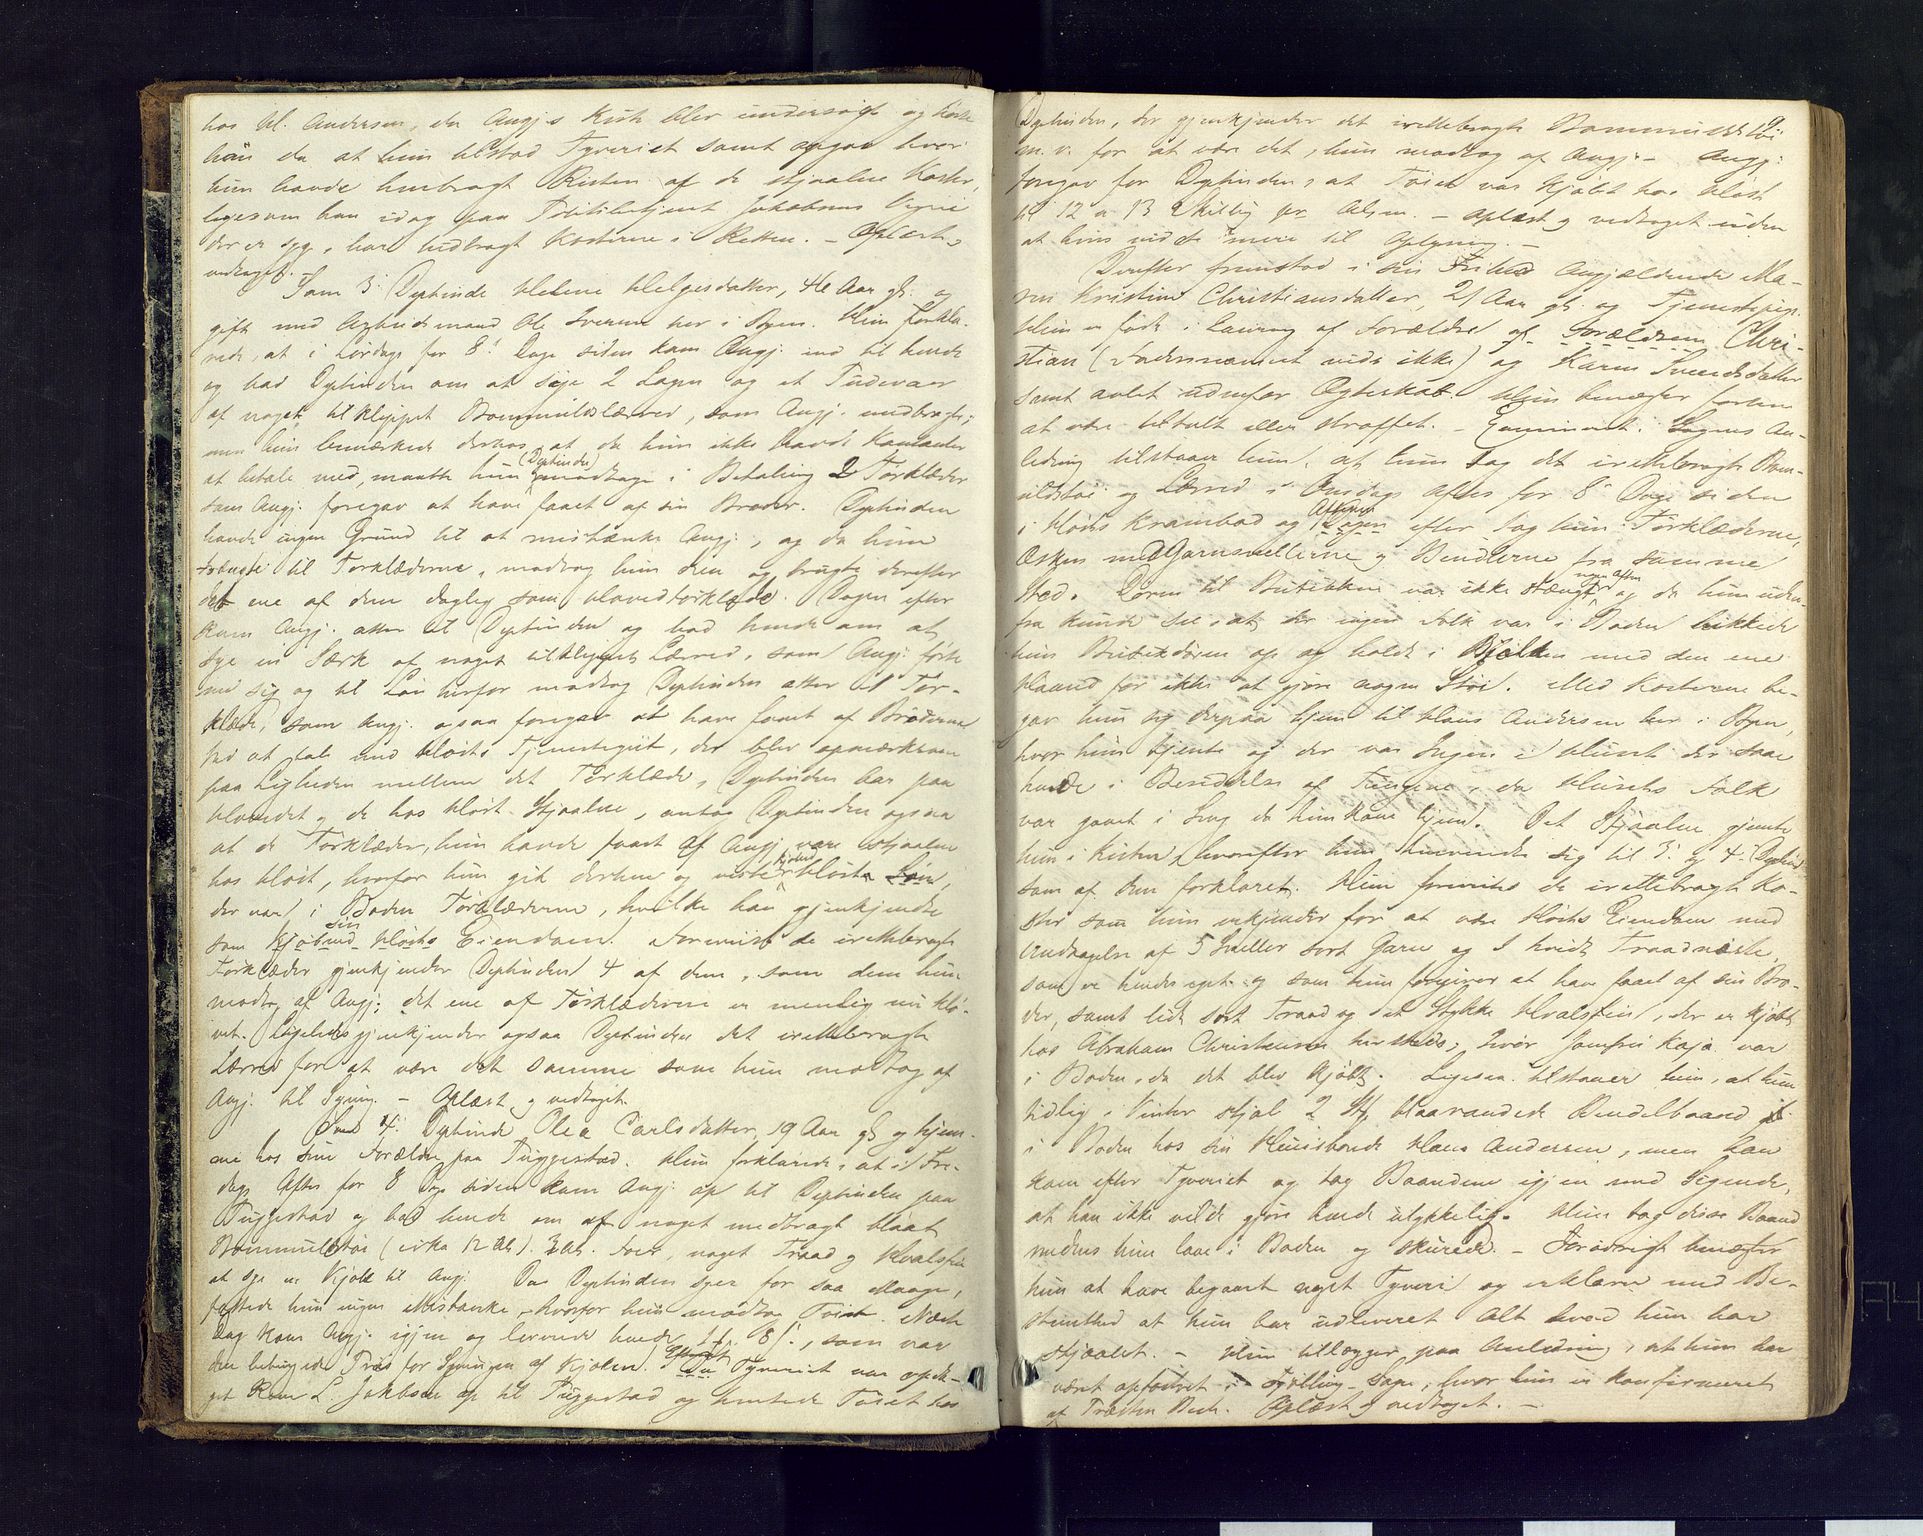 hos H. Andersen, da Angj.s Kiste blev undersøgt og hørte
han da at hun tilstod Tyveriet samt opgav hvor
hun havde henbragt Resten af de stjaalne Koster,
ligesom han idag paa Politibetjent Jakobsens Vegne
der er syg, har indbragt Kosterne i Retten. – Oplæst,
vedtaget.
Som 3. Deponentinde Helene Helgesdatter, 46 Aar gl. og
gift med Arbeidsmand Ole Iversen her i Byen. Hun forkla-
rede, at i Lørdags for 8 Dage siden kom Angj. ind til hende
og bad Deptinden om at sye 2 Lagen og et Pudevaar
af noget tilklippet Bommuldslærred, som Angj. medbragte;
men hun bemærkede derhos, at da hun ikke havde Kontanter
at betale med, maatte hun (Deptinden) modtage i Betaling 2 Tørklæder
som Angj. foregav at have faaet af sin Broder. Deptinden
havde ingen Grund til at mistænke Angj., og da hun
trængte til Tørklæderne, modtog hun dem og brugte derefter
det ene af dem daglig som Hovedtørklæde. Dagen efter
kom Angj. atter til Deptinden og bad hende om at
sye en Særk af noget tilklippet Lærred, som Angj. førte
med sig og til Løn herfor modtog Deptinden atter et Tør-
klæde, som Angj. ogsaa foregav at have faaet af Broderen
Ved at tale med Høsts Tjenestepige, der blev opmærksom
paa Ligheden mellem det Tørklæde, Deptinden bar paa
Hovedet og de hos Høst stjaalne, antog Deptinden ogsaa
at de Tørklæder, hun havde faaet af Angj. vare stjaalne
hos Høst, hvorfor hun gik derhen og viste Høsts Søn,
der var i Boden Tørklæderne, hvilke han gjenkjendte
som sin Eiendom. Forevist de irettebragte
Tørklæder gjenkjender Deptinden 4 af dem, som dem hun
modtog af Angj.; det ene af Tørklæderne er nemlig nu klø-
vet. Ligeledes gjenkjender ogsaa Deptinden det irettebragte
Lærred for at være det samme som hun modtog af
Angj. til Syning. – Oplæst og vedtaget.
Som 4. Deptinde Olea Carlsdatter, 19 Aar gl. og hjem-
me hos sine Forældre paa Tuggestad. Hun forklarede, at i Fre-
dags Aftes for 8 Dage siden kom Angj. op til Deptinden paa
Tuggestad og bad hende om af noget medbragt blaat
Bommuldstøi (cirka 12 Al.). 3 Al. Foer, noget Traad og Hvalfisk
at sye en Kjole til Angj. Da Deptinden syer for saa Mange,
fattede hun ingen Mistanke, hvorfor hun modtog Tøiet. Næste
Dag kom Angj. igjen og leverede hende , som var
den betingede Pris for Syningen af Kjolen. Da Tyveriet var opda-
get kom L. Jakobsen op til Tuggestad og hentede Tøiet hos
Deptinden, der gjenkjender det irettebragte Bommuldstøi
m. v. for at være det, hun modtog af Angj. – Angj.
foregav for Deptinden, at Tøiet var kjøbt hos Høst
til 12 a 13 Skilling pr. Alen. – Oplæst og vedtaget uden
at hun vidste mere til Oplysning. –
Derefter fremstod i sin Frihed Angjældende Ma-
ren Kristine Christiansdatter, 21 Aar gl. og Tjenestepige.
Hun er født i Laurvig af Forældre Chri-
stian (Fadersnavnet vides ikke) og Karen Svendsdatter
samt avlet udenfor Ægteskab. Hun benægter forhen
at være tiltalt eller straffet. – Examineret i Sagens An-
ledning tilstaaer hun, at hun tog det irettebragte Bom-
uldstøi og Lærred i Onsdags Aftes for 8 Dage siden
i Høsts Krambod og Aftenen efter tog hun Tørklæderne,
Æsken med Garnsnellerne og Bendlerne fra samme
Sted. Døren til Butikken var ikke stængt nogen Aften og da hun uden-
fra kunde see, at der ingen Folk var i Boden lukkede
hun Butikdøren op og holdt i Bjelden med den ene
Haand for ikke at gjøre nogen Støi. Med Kosterne be-
gav hun sig derpaa hjem til Hans Andersen her i Byen,
hvor hun tjente og der var Ingen i Huset der saae
hende i Besiddelse af Tingene, da Husets Folk
var gaaet i Seng da hun kom hjem. Det Stjaalne gjemte
hun i Kisten, hvorefter hun henvendte sig til 3. og 4. Deptinde
som af dem forklaret. Hun foreviste de irettebragte Ko-
ster som hun erkjender for at være Høsts Eiendom med
Undtagelse af 5 Sneller sort Garn og 1 hvidt Traadnøste,
som er hendes eget og som hun foregiver at have faaet af sin Bro-
der, samt lidt sort Traad og et Stykke Hvalfisk, der er kjøbt
hos Abraham Christensen hersteds, hvor Jomfru Kaja var
i Boden, da det blev kjøbt. Ligesaa tilstaaer hun, at hun
tidlig i Vinter stjal 2 Stk. blaarandede Bendelbaand
i Boden hos sin Huusbonde Hans Andersen, men han
kom efter Tyveriet og tog Baandene igjen med Sigende,
at han ikke vilde gjøre hende ulykkelig. Hun tog disse Baand
medens hun laae i Boden og skurede. – Forøvrigt benægter
hun at have begaaet noget Tyveri og erklærer med Be-
stemthed at hun har udleveret Alt hvad hun har
stjaalet. – Hun tillægger paa Anledning, at hun har
været opfostret i Tjølling Sogn, hvor hun er konfirmeret
af Præsten Bech. Oplæst og vedtaget. –